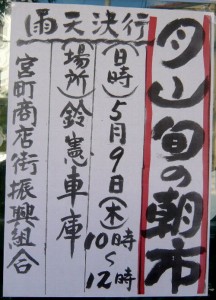 月山旬の朝市
雨天決行
(日時)5月9日(木)
10時~12時
(場所)鈴憲車庫
宮町商店街振興組合